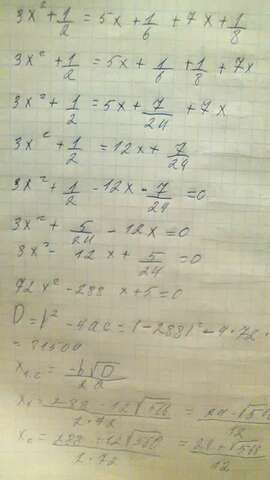 3x² + 1/2 = 5x + 1/6 + 7x + 1/8
3x² + 1/2 = 5x + 1/6 + 1/8 + 7x
3x² + 1/2 = 5x + 7/24 + 7x
3x² + 1/2 = 12x + 7/24
3x² + 1/2 - 12x - 7/24 = 0
3x² + 5/24 - 12x = 0
3x² - 12x + 5/24 = 0
72x² - 288x + 5 = 0
D = b² - 4ac = (-288)² - 4·72·
= 81504
x₁,₂ = -b √D / 2a
x₁ = 288 - 12√566 / 2·72 = 24 - √566 / 12
x₂ = 288 + 12√566 / 2·72 = 24 + √566 / 12